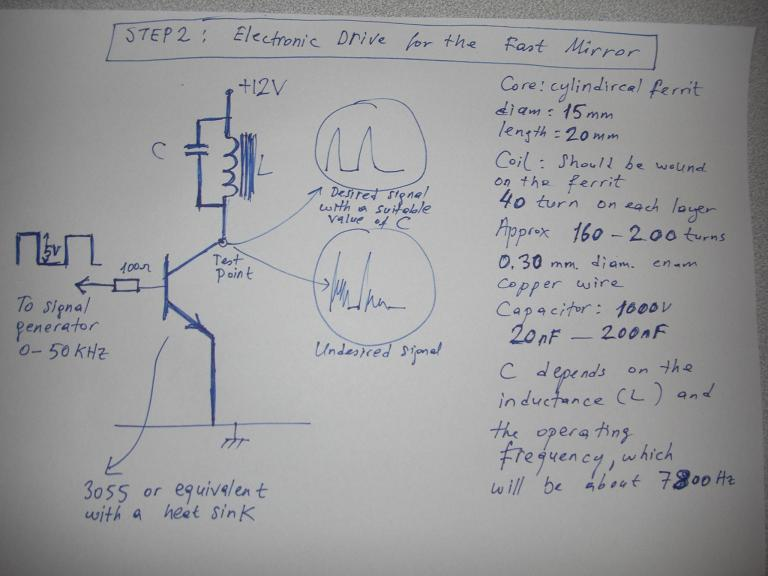 STEP2: Electronic Drive for the Fast Mirror
+12V
C
L
Desired signal
with a suitable
value of C
5V
100Ω
Test
Point
To signal
generator
0-50KHz
Undesired signal
3055 or equivalent
with a heat sink
Core: cylindircal ferrit
diam: 15mm
length = 20mm
Coil: Should be wound
on the ferrit
40 turn on each layer
Approx 160-200 turns
0.30 mm. diam. enam
copper wire
Capacitor: 1000V
20nF - 200nF
C depends on the
inductance (L) and
the operating
frequency, which
will be about 7800Hz